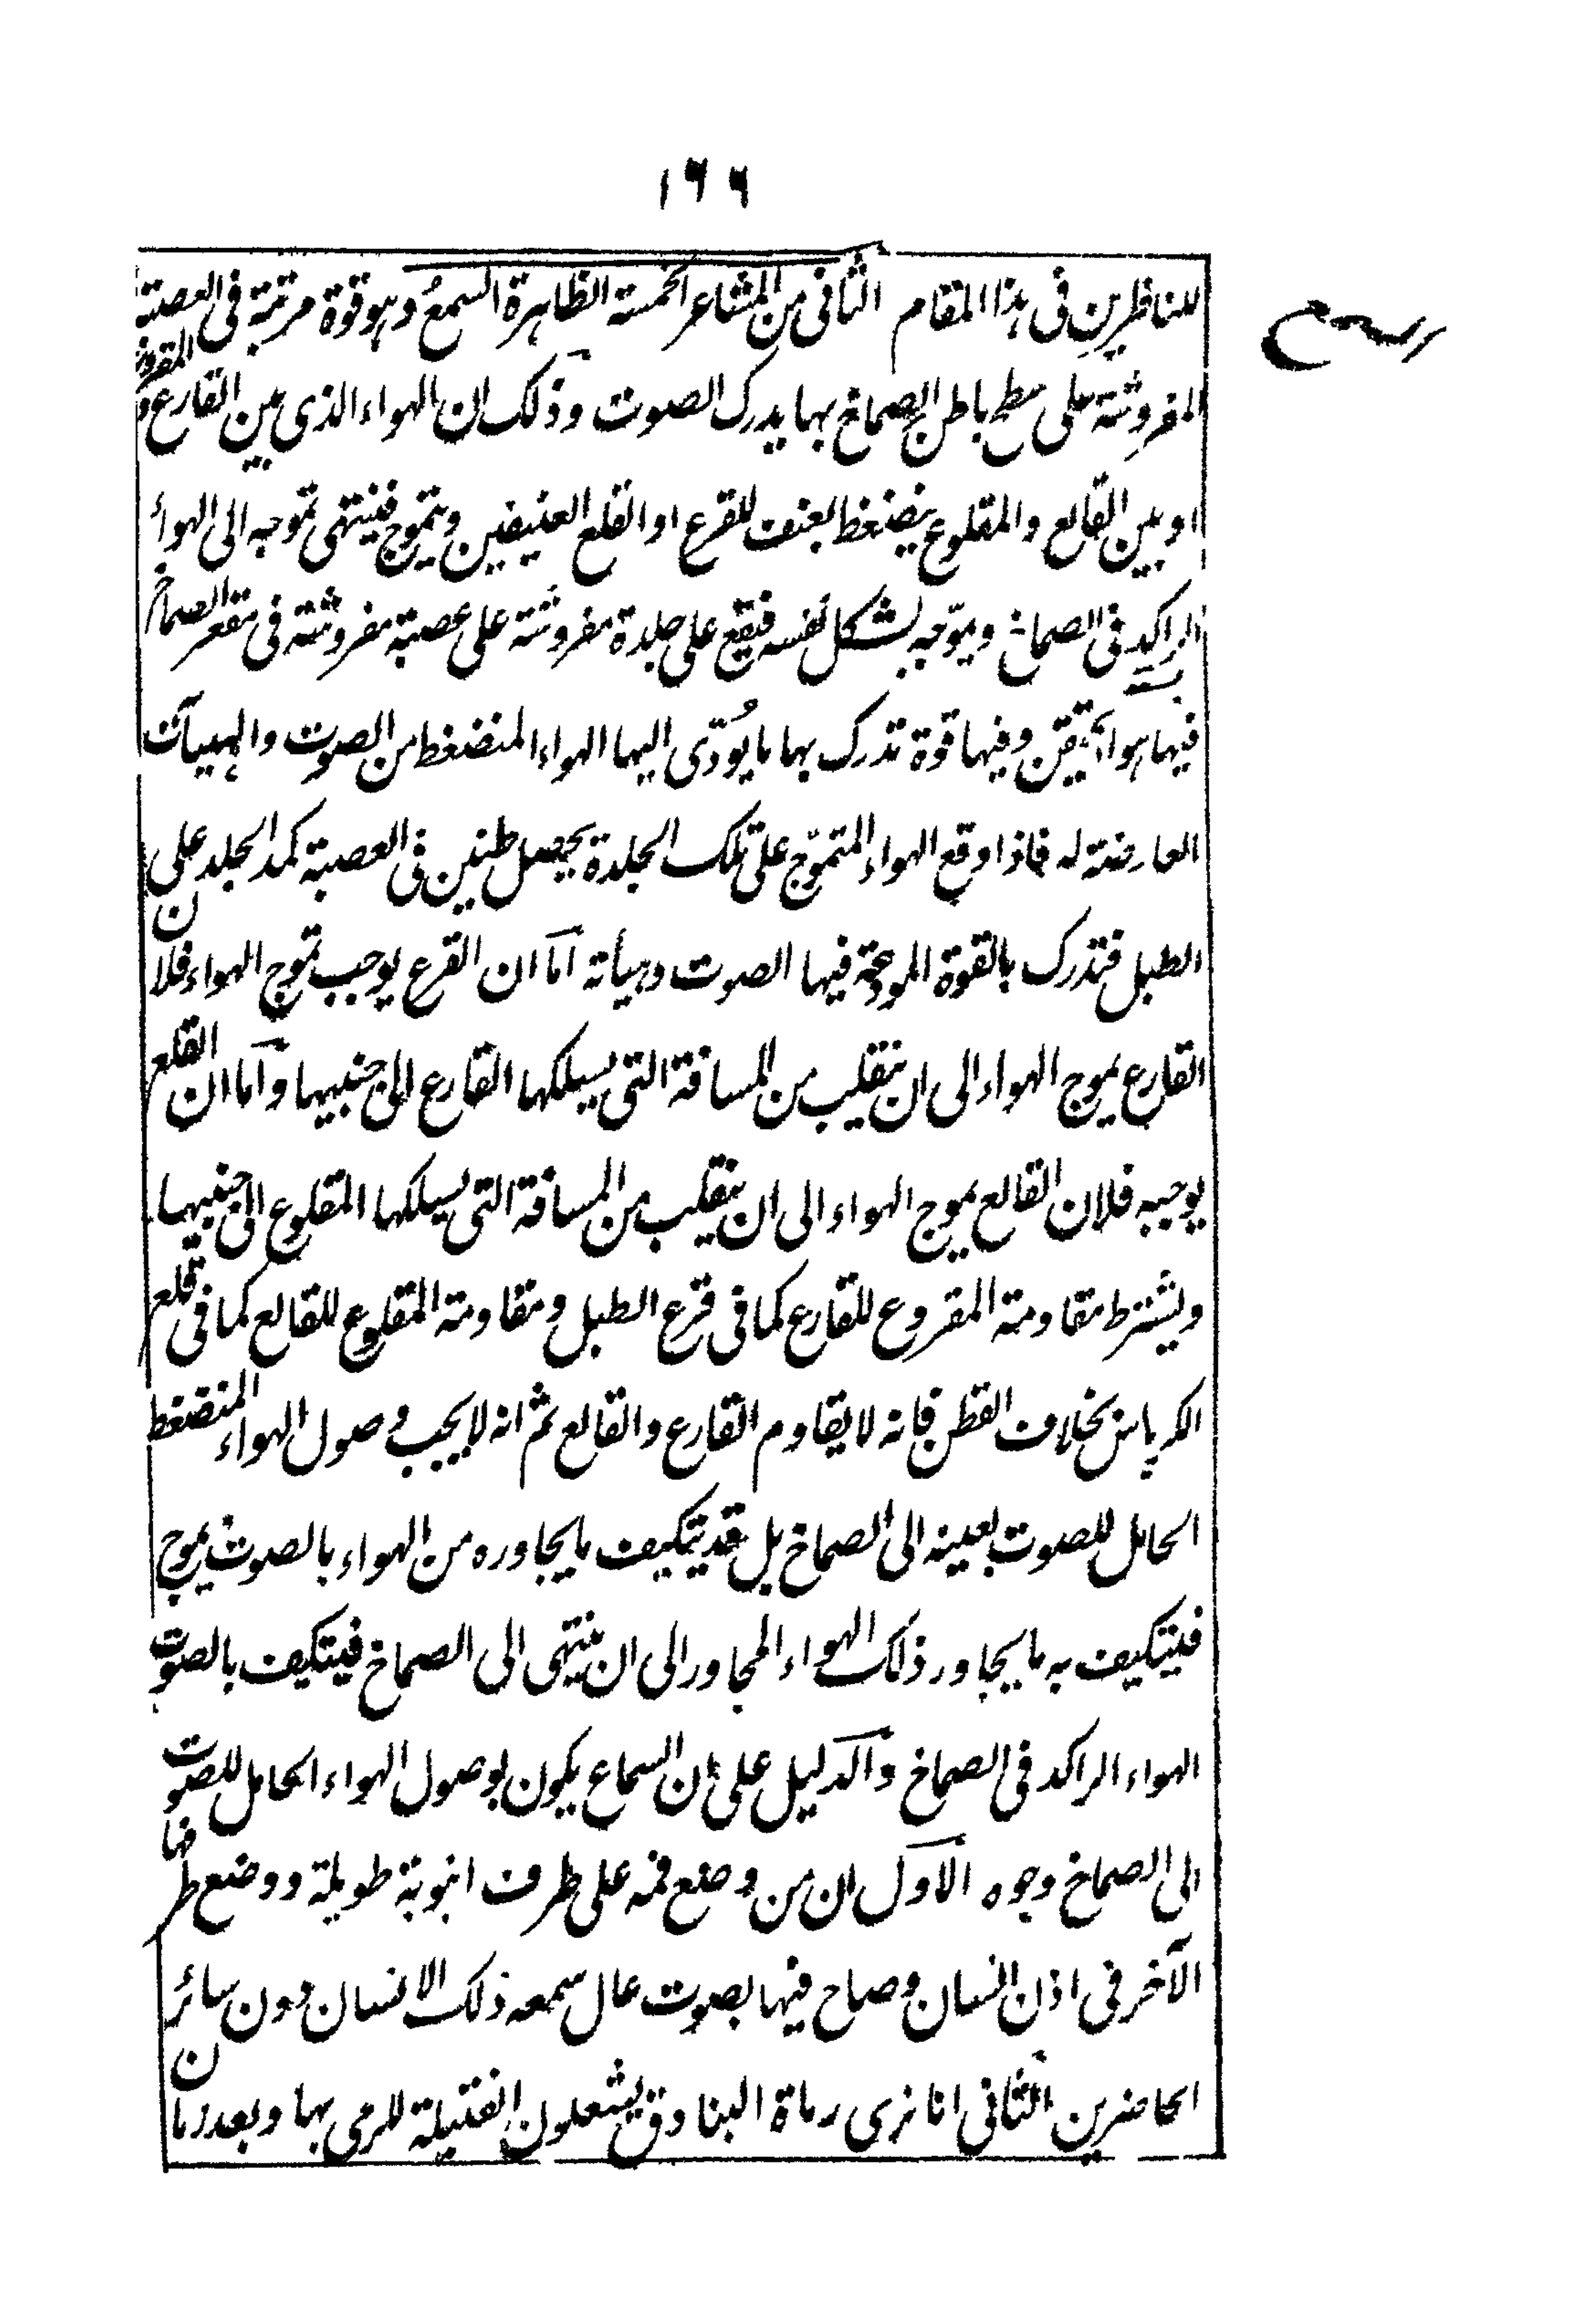 ١٦٦
السمع
للناظرين فى هذا المقام الثانى من المشاعر الخمسة الظاهرة السمع وهو قوة مرتبة فى العصبة
المفروشة على سطح باطن الصماخ بها يدرك الصوت وذلك ان الهواء الذى بين القارع والمقروع
او بين القالع والمقلوع ينضغط بعنف للقرع او القلع العنيفين ويتموج فينتهى تموجه الى الهواء
الراكد فى الصماخ ويموّجه بشكل نفسه فيقع على جلدة مفروشة على عصبة مفروشة فى مقعر الصماخ
فيها هواء محتقن وفيها قوة تدرك بها ما يُودّى اليها الهواء المنضغط من الصوت والهيئات
العارضة له فاذا وقع الهواء المتموّج على تلك الجلدة يحصل طنين فى العصبة كمد الجلد على
الطبل فتدرك بالقوة المودعة فيها الصوت وهيأته اما ان القرع يوجب تموج الهواء فلان
القارع يموج الهواء الى ان ينقلب من المسافة التى يسلكها القارع الى جنبيها واما ان القلع
يوجبه فلان القالع يموج الهواء الى ان ينقلب من المسافة التى يسلكها المقلوع الى جنبيها
ويشترط مقاومة المقروع للقارع كما فى قرع الطبل ومقاومة المقلوع للقالع كما فى قلع
الكرباس بخلاف القطن فانه لا يقاوم القارع والقالع ثم انه لا يجب وصول الهواء المنضغط
الحامل للصوت بعينه الى الصماخ بل قد يتكيف ما يجاوره من الهواء بالصوت يموج
فيتكيف به ما يجاور ذلك الهواء المجاور الى ان ينتهى الى الصماخ فيتكيف بالصوت
الهواء الراكد فى الصماخ والدليل على ان السماع يكون بوصول الهواء الحامل للصوت
الى الصماخ وجوه الاول ان من وضع فمه على طرف انبوبة طويلة ووضع طرفها
الآخر فى اذن انسان وصاح فيها بصوت عال سمعه ذلك الانسان دون سائر
الحاضرين الثانى انا نرى رماة البنادق يشعلون الفتيلة للرمى بها وبعد زمان